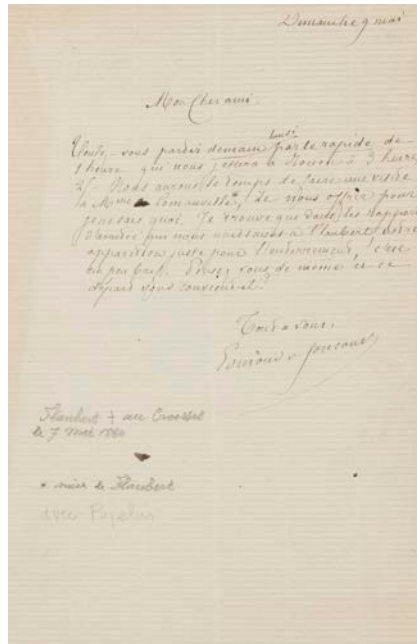 Dimanche 9 mai
Mon cher ami
lundi
Voulez-vous partir demain par le rapide de
1 heure qui nous mettra à Rouen à 3 heures
Nous aurons le temps de faire une visite
à Mme Comanville*, de nous offrir pour
je ne sais quoi. Je trouve que dans les rapports
qui nous unissaient à Flaubert, notre
apparition juste pour l'enterrement, c'est
un peu bref. Pensez vous de même et ce
départ vous convient-il?
Tout à vous,
Edmond de Goncourt
Flaubert † au Croisset
le 7 mai 1880
* nièce de Flaubert
avec Popelin